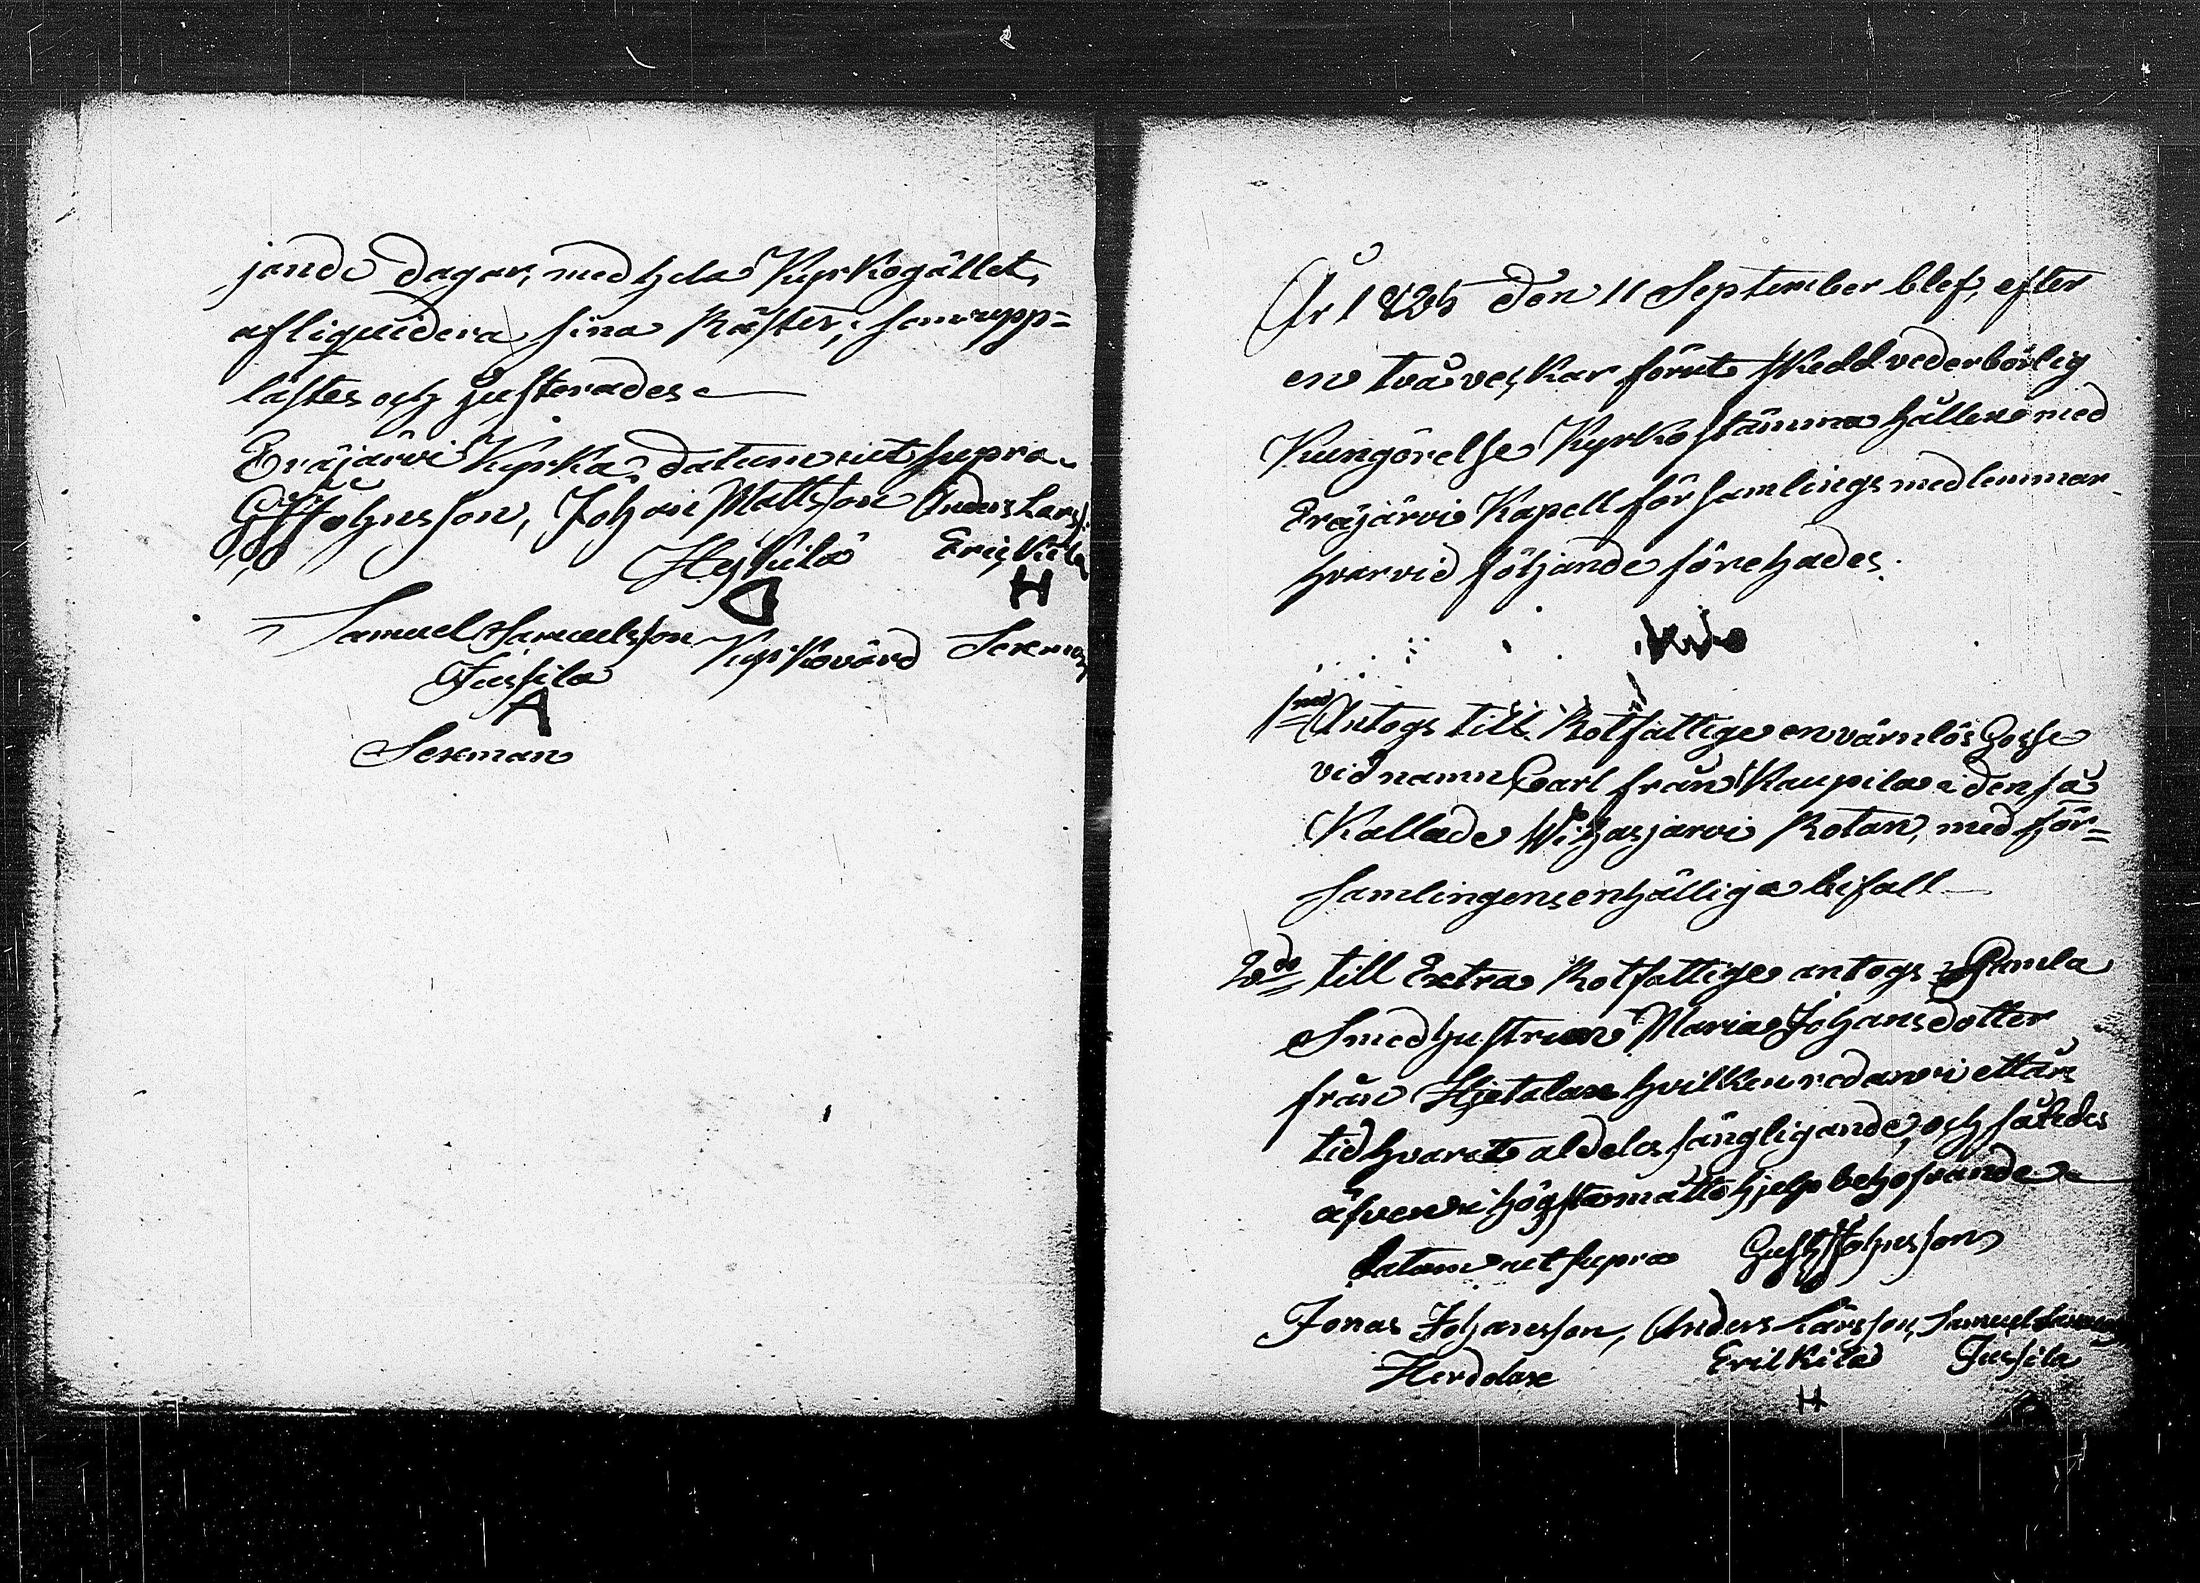 jande dagar, med hela Kyrkogället
afliquidera sina Räster; som upp=
lästes och Justerades.
Eräjärvi Kyrka, datum ut supra.
G Johnsson, Johan Mattsson Anders Larss.
Heikilä Erickila
H
Samuel Samuelsson Kyrkovärd Sexman
Jussila
A
Sexman
År 1825 den 11 September blef, efter
en två veckar förut skedd vederbörlig
Kungörelse Kyrkostämma hållen med
Eräjärvi Kapell församlings medlemmar
hvarvid följande förehades.
1mo Antogs till Rotfattige en värnlös Gosse
vid namn Carl från Kaupila i den så
Kallade Wihasjärvi Rotan, med för=
samlingens enhälliga bifall
2do till Extra Rotfattige antogs Gamla
Smedhustrun Maria Johansdotter
från Hjetalax hvilken redan i ett års
tid hvarit aldeles sängliggande, och således
äfven i högsta måtto hjelp behofvande
datum ut supra Gust Johnsson
Jonas Johansson, Anders Larsson, Samuel
Herdolax Erikkila Jussila
H